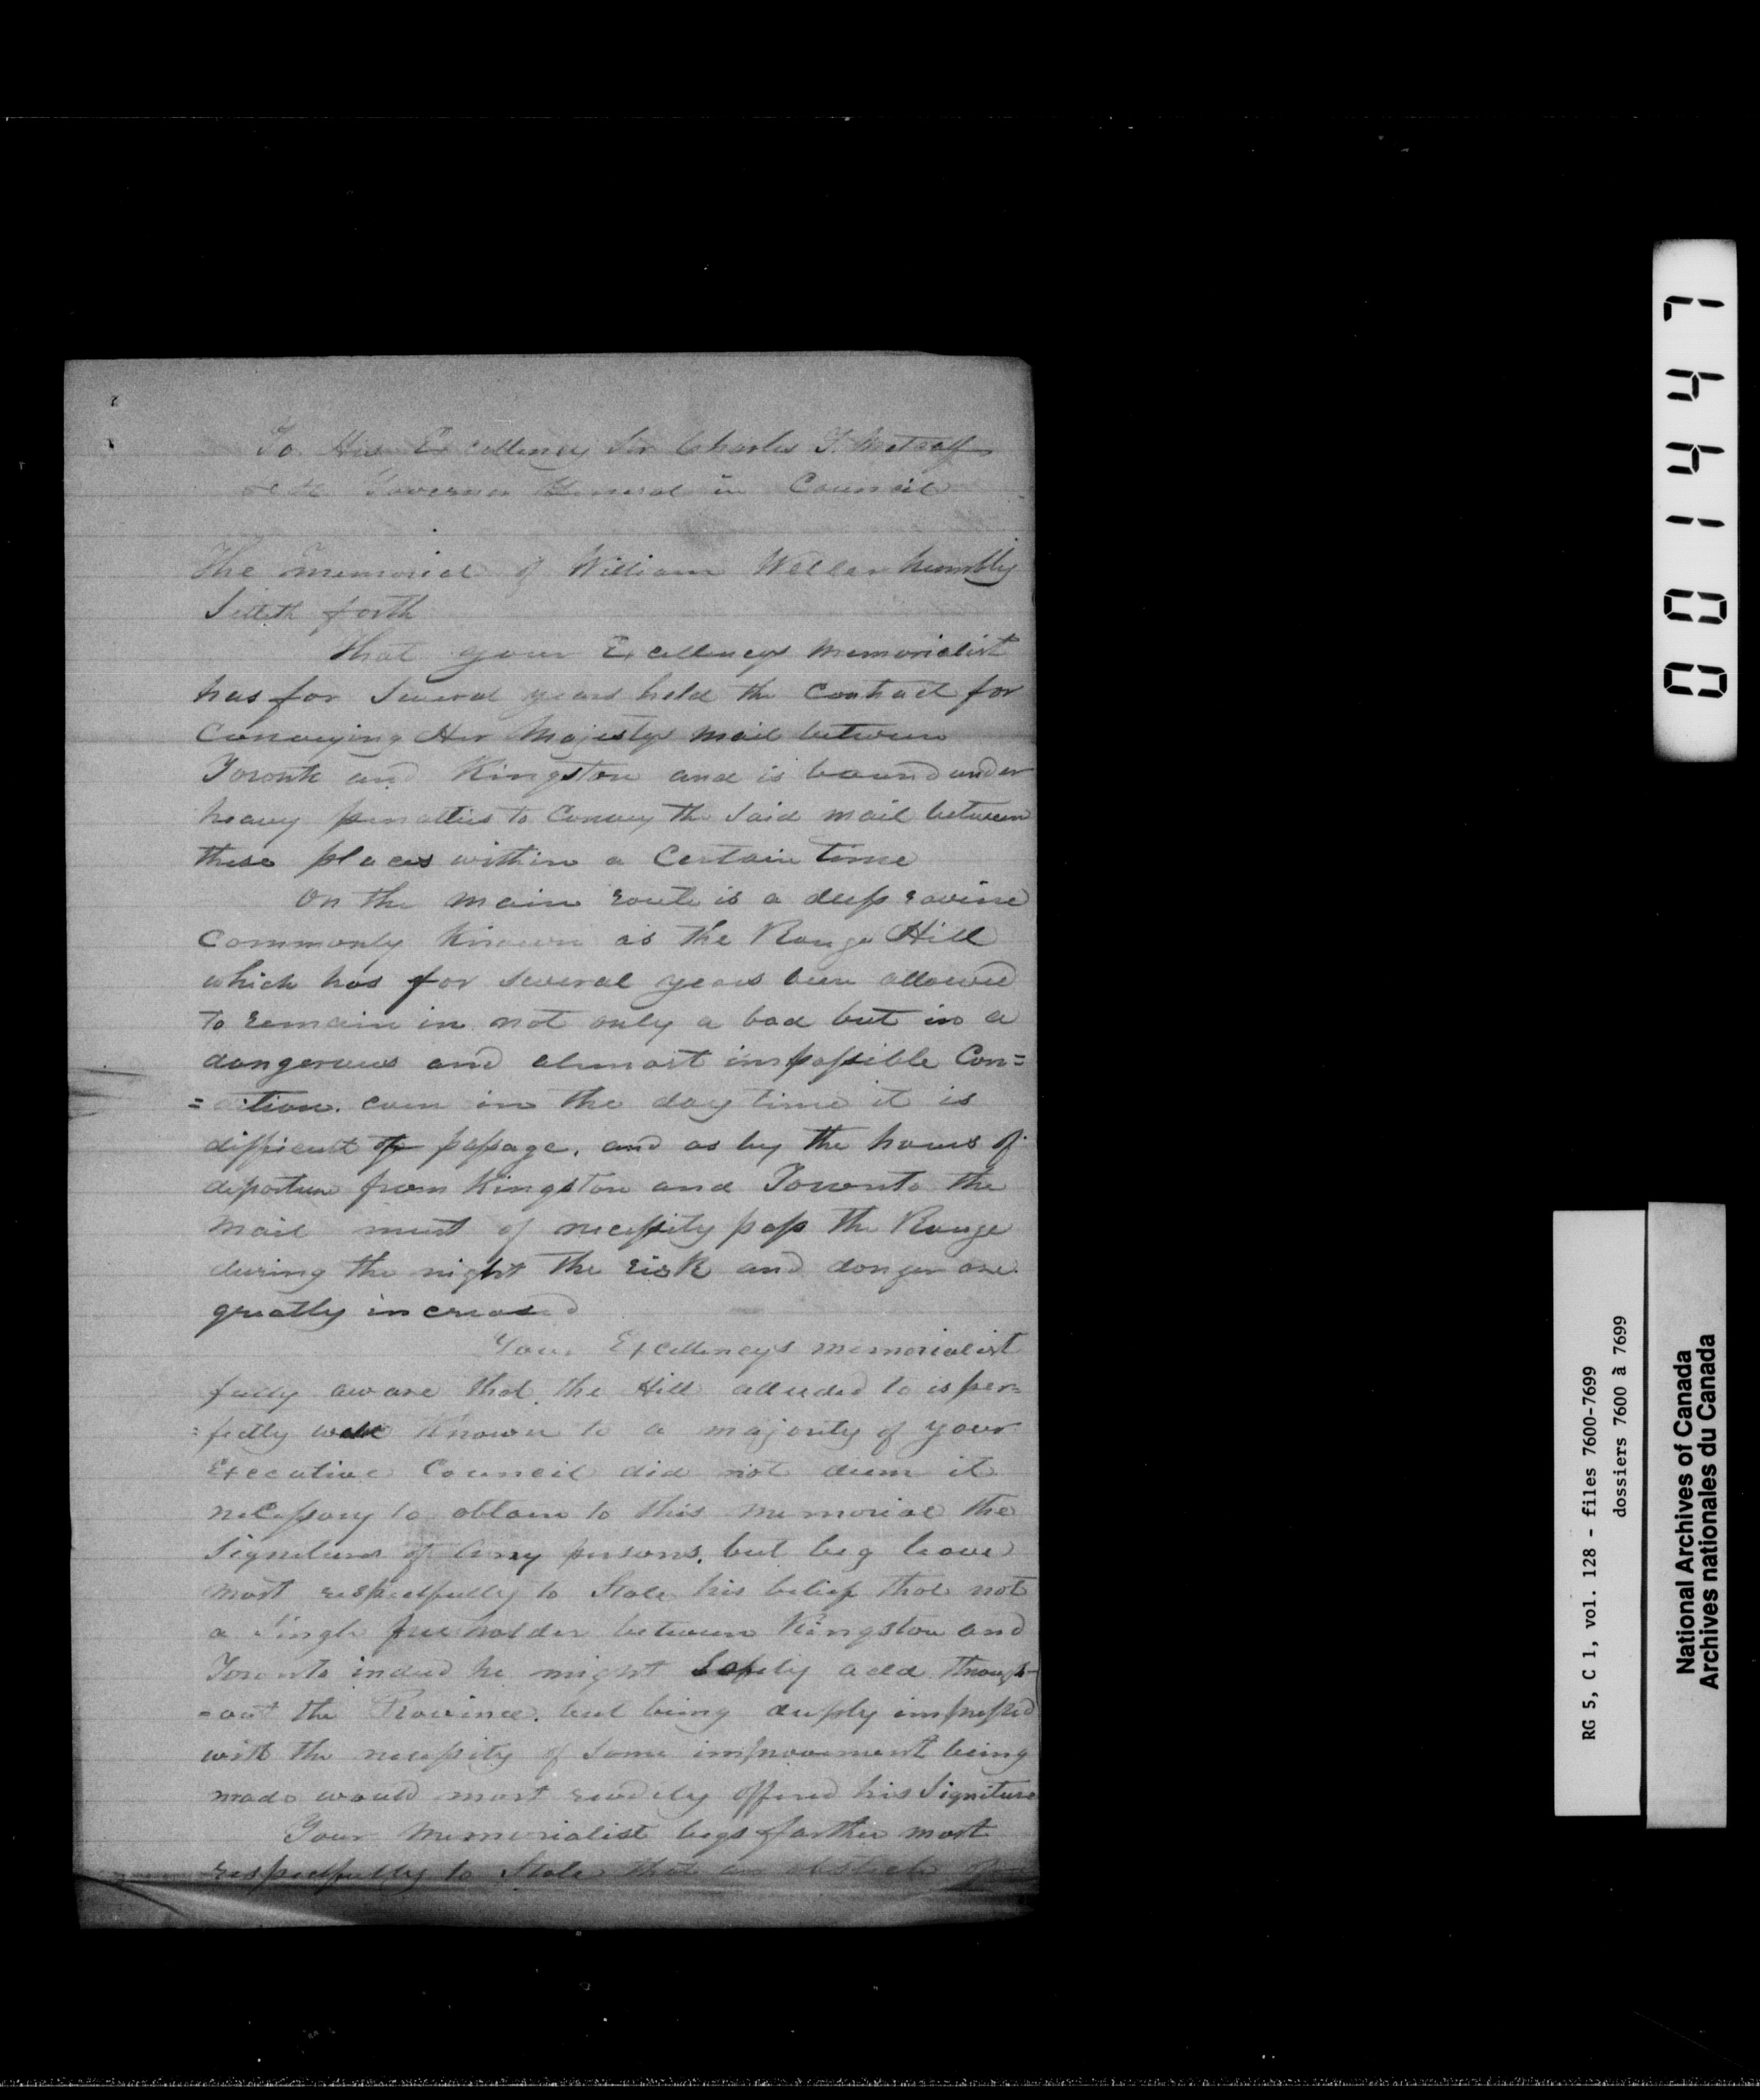 To His Excellency Sir Charles T. Metcalf
&c &c Governor General in Council
The memorial of William Weller humbly
Setteth forth
That your Excellencys memorialist
has for Several years held the Contract for
Conveying Her Majestys mail between
Toronto and Kingston and is bound under
heavy penalties to Convey the Said mail between
these places within a Certain time
On the main route is a deep ravine
Commonly Known as the Rouge Hill
which has for Several years been allowed
To remain in not only a bad but in a
dangerous and almost impossible Con=
=dition. even in the day time it is
difficult of passage. and as by the hours of
departure from Kingston and Toronto the
mail must of necessity pass the Rouge
during the night the risk and danger are
greatly increased
Your Excellencys memorialist
fully aware that the Hill alluded to is per=
=fectly well Known to a majority of your
Executive Council did not deem it
necessary to obtain to this memorial the
Signatures of any persons, but beg leave
most respectfully to State his belief that not
a Single free holder between Kingston and
Toronto indeed he might Safely add through=
=out the Province. but being deeply impressed
with the necessity of Some improvement being
made would most readily offered his Signiture
Your memorialist begs farther most
respectfully to State that an obstacle of
00144447
RG 5, C 1, vol. 128 - files 7600-7699
dossiers 7600 à 7699
National Archives of Canada
Archives nationales du Canada